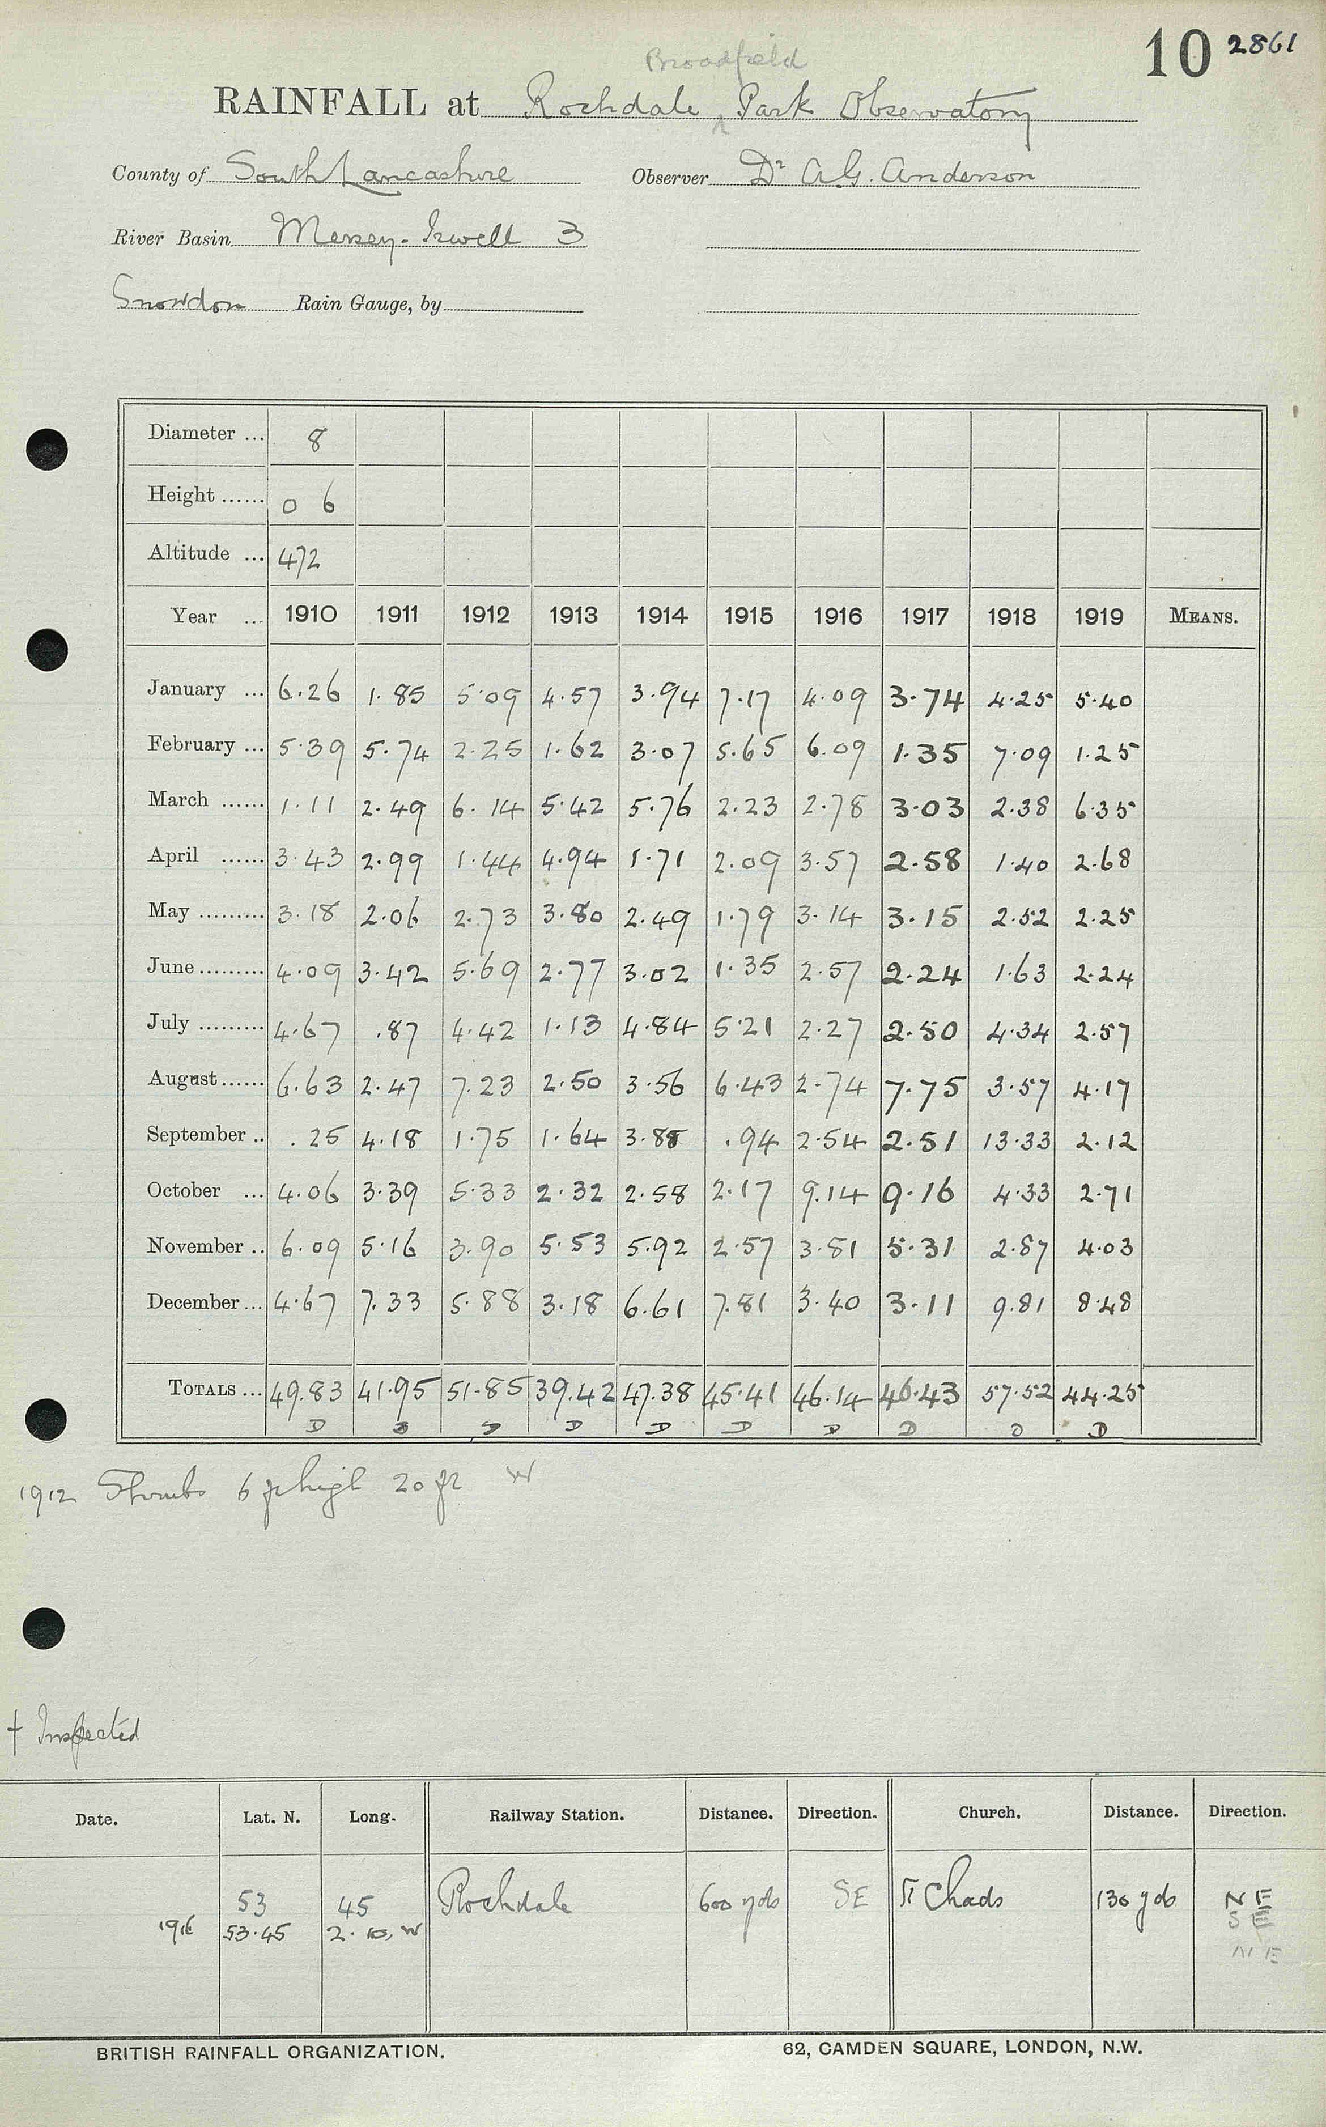 10 2861
Broadfield
RAINFALL at Rochdale ^ Park Observatory
County of South Lancashire Observer Dr A.G. Anderson
River Basin Mersey-Irwell 3
Snowdon Rain Gauge, by
Diameter ... 8
Height ...... 0 6
Altitude ... 472
Year ... 1910 1911 1912 1913 1914 1915 1916 1917 1918 1919 MEANS.
January ... 6.26 1.85 5.09 4.57 3.94 7.17 4.09 3.74 4.25 5.40
February ... 5.39 5.74 2.25 1.62 3.07 5.65 6.09 1.35 7.09 1.25
March ...... 1.11 2.49 6.14 5.42 5.76 2.23 2.78 3.03 2.38 6.35
April ...... 3.43 2.99 1.44 4.94 1.71 2.09 3.57 2.58 1.40 2.68
May ......... 3.18 2.06 2.73 3.80 2.49 1.79 3.14 3.15 2.52 2.25
June ......... 4.09 3.42 5.69 2.77 3.02 1.35 2.57 2.24 1.63 2.24
July ......... 4.67 .87 4.42 1.13 4.84 5.21 2.27 2.50 4.34 2.57
August ...... 6.63 2.47 7.23 2.50 3.56 6.43 2.74 7.75 3.57 4.17
September .. .25 4.18 1.75 1.64 3.88 .94 2.54 2.51 13.33 2.12
October ... 4.06 3.39 5.33 2.32 2.58 2.17 9.14 9.16 4.33 2.71
November .. 6.09 5.16 3.90 5.53 5.92 2.57 3.81 5.31 2.87 4.03
December ... 4.67 7.33 5.88 3.18 6.61 7.81 3.40 3.11 9.81 8.48
TOTALS ... 49.83 41.95 51.85 39.42 47.38 45.41 46.14 46.43 57.52 44.25
D D D D D D D D D D
1912 Shrubs 6 ft high 20 ft W
† Inspected
Date. Lat. N. Long. Railway Station. Distance. Direction. Church. Distance. Direction.
53 45 Rochdale 600 yds SE St Chads 130 yds NE
1916 53.45 2.10.W SE
NE
BRITISH RAINFALL ORGANIZATION. 62, CAMDEN SQUARE, LONDON, N.W.